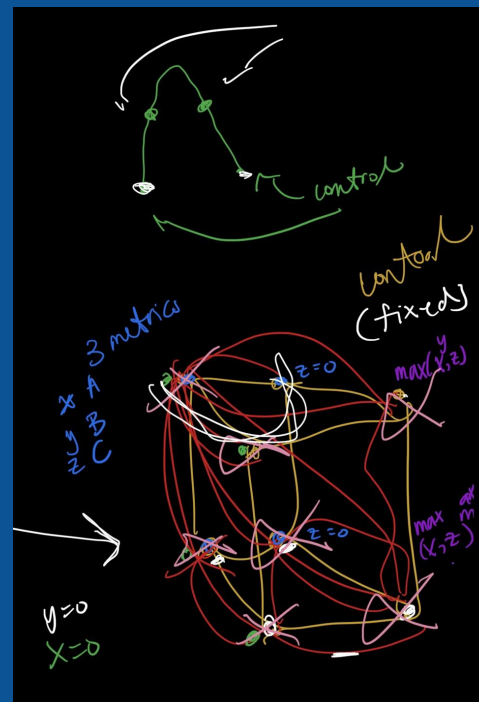 control
control
(fixed)
3 metrics
x A
y B
z C
z=0
y
max(x,z)
z=0
max
(x,z)
y=0
x=0